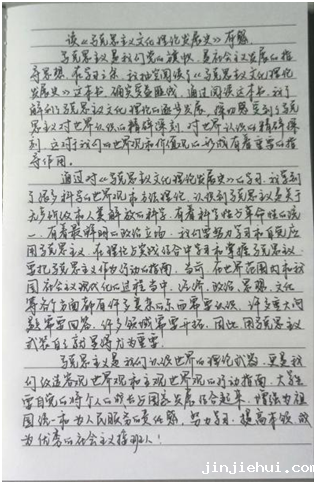 读《马克思主义文化理论发展史》有感
马克思主义是我们党的旗帜，是社会主义发展的指
导思想。在学习之余，我抽空阅读了《马克思主义文化理论
发展史》这本书，确实受益匪浅，通过阅读这本书，我了
解到了马克思主义文化理论的逐步发展，深切感受到了马克
思主义对世界认识的精辟深刻，对世界认识的精辟深
刻，这对于我们的世界观和价值观的形成有着重要的指
导作用。
通过对《马克思主义文化理论发展史》的学习，我学到
了很多科学的世界观和方法理论，认识到马克思主义是关于
无产阶级和人类解放的科学，有着科学性与革命性的统
一，有着最鲜明的政治立场，我们要努力学习和自觉应
用马克思主义，在理论与实践结合中学习和掌握马克思主义，
要把马克思主义作为行动的指南。当前，在世界范围内和我
国社会主义现代化的过程当中，经济、政治、思想、文化
等各个方面都有许多复杂的东西需要认识，许多重大问
题需要回答，许多领域需要开拓，因此，用马克思主义
武装自己就显得尤为重要。
马克思主义是我们认识世界的理论武器，更是我
们改造客观世界观和主观世界观的行动指南，大学生
要自觉的将个人的成长与国家发展结合起来，增强为祖
国统一和为人民服务的责任感，努力学习，提高本领，成
为优秀的社会主义接班人！
www.jinjiehui.com